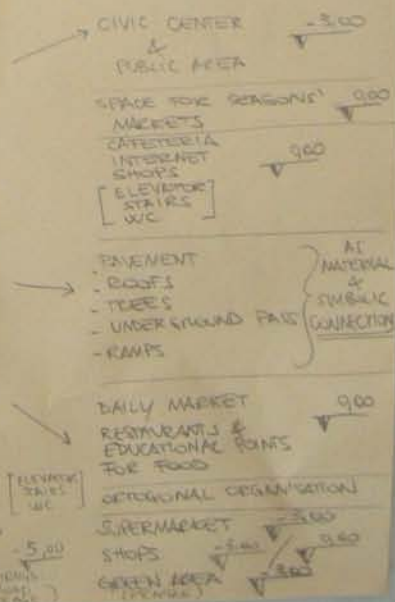 CIVIC CENTER -3,00
&
PUBLIC AREA
SPACE FOR SEASONS' 0,00
MARKETS
CAFETERIA
INTERNET 0,00
SHOPS
[ELEVATOR
STAIRS
WC]
PAVEMENT
- ROOFS
- TREES
- UNDERGROUND PASS
- RAMPS
AS
MATERIAL
&
SIMBOLIC
CONNECTION
DAILY MARKET 0,00
RESTAURANTS &
EDUCATIONAL POINTS
FOR FOOD
[ELEVATOR
STAIRS
WC]
ORTOGONAL ORGANISATION
SUPERMARKET -3,00
SHOPS -3,00 / 0,00
GREEN AREA -3,00
-5,00